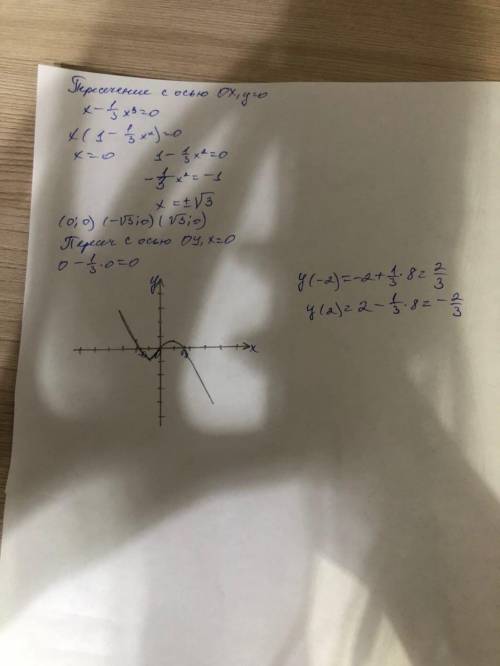 Пересечение с осью OX, y=0
x - 1/3 x³ = 0
x(1 - 1/3 x²) = 0
x = 0 1 - 1/3 x² = 0
-1/3 x² = -1
x = ±√3
(0; 0) (-√3; 0) (√3; 0)
Пересеч с осью OY, x=0
0 - 1/3 · 0 = 0
y
x
y(-2) = -2 + 1/3 · 8 = 2/3
y(2) = 2 - 1/3 · 8 = -2/3